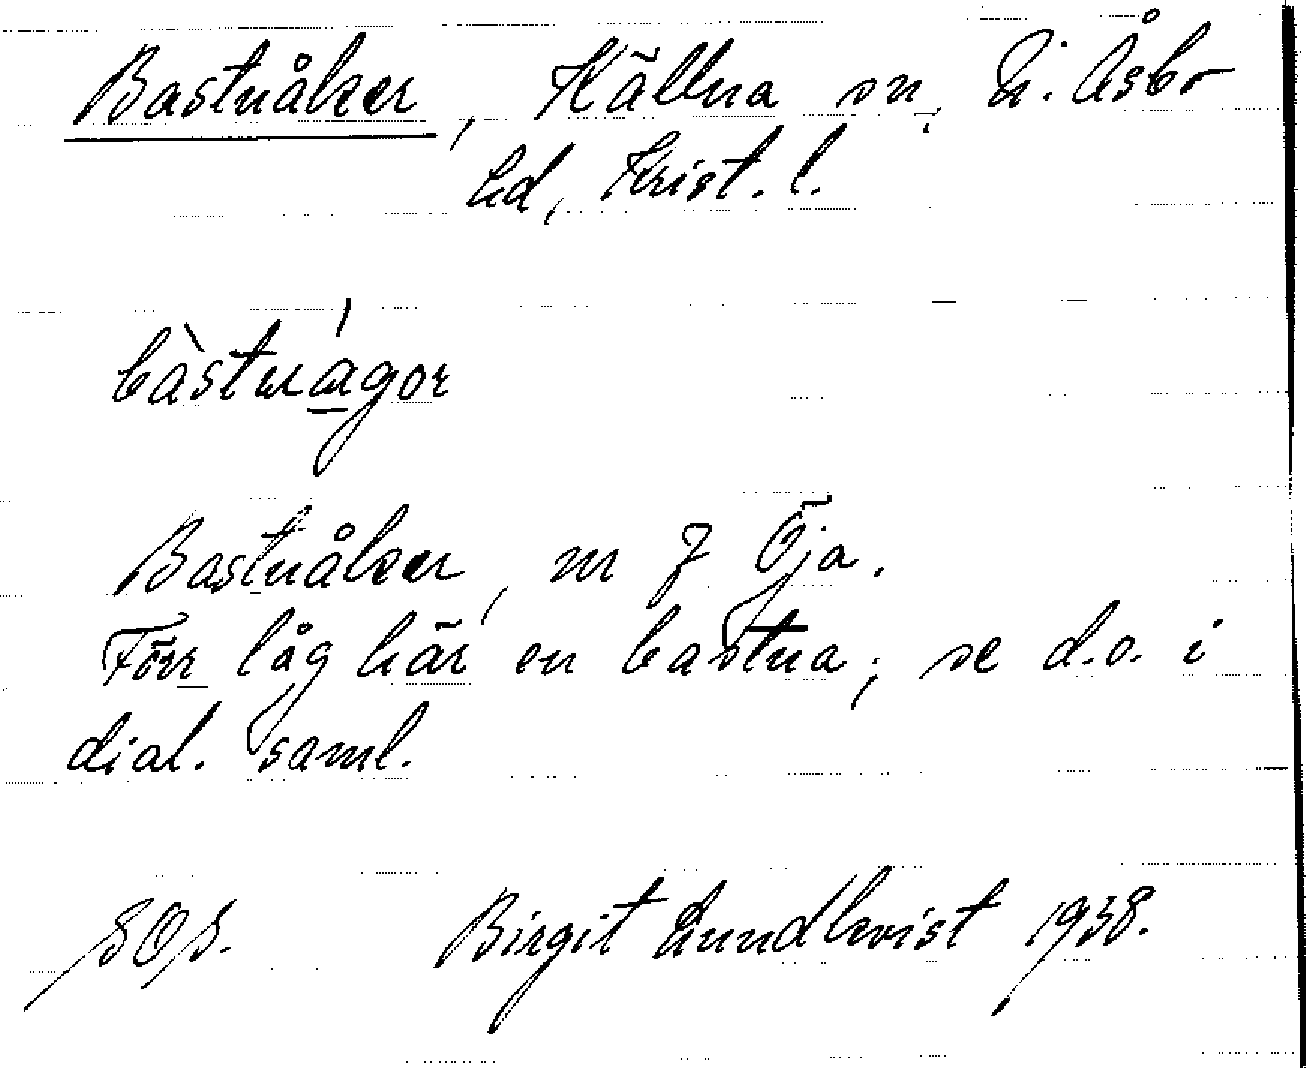 Bastuåker, Källna sn, N. Åsbo
hd, Krist. l.
bàstuágor
Bastuåker, nr 7 Öja.
Förr låg här en bastua, se d.o. i
dial. saml.
SOS. Birgit Lundkvist 1938.